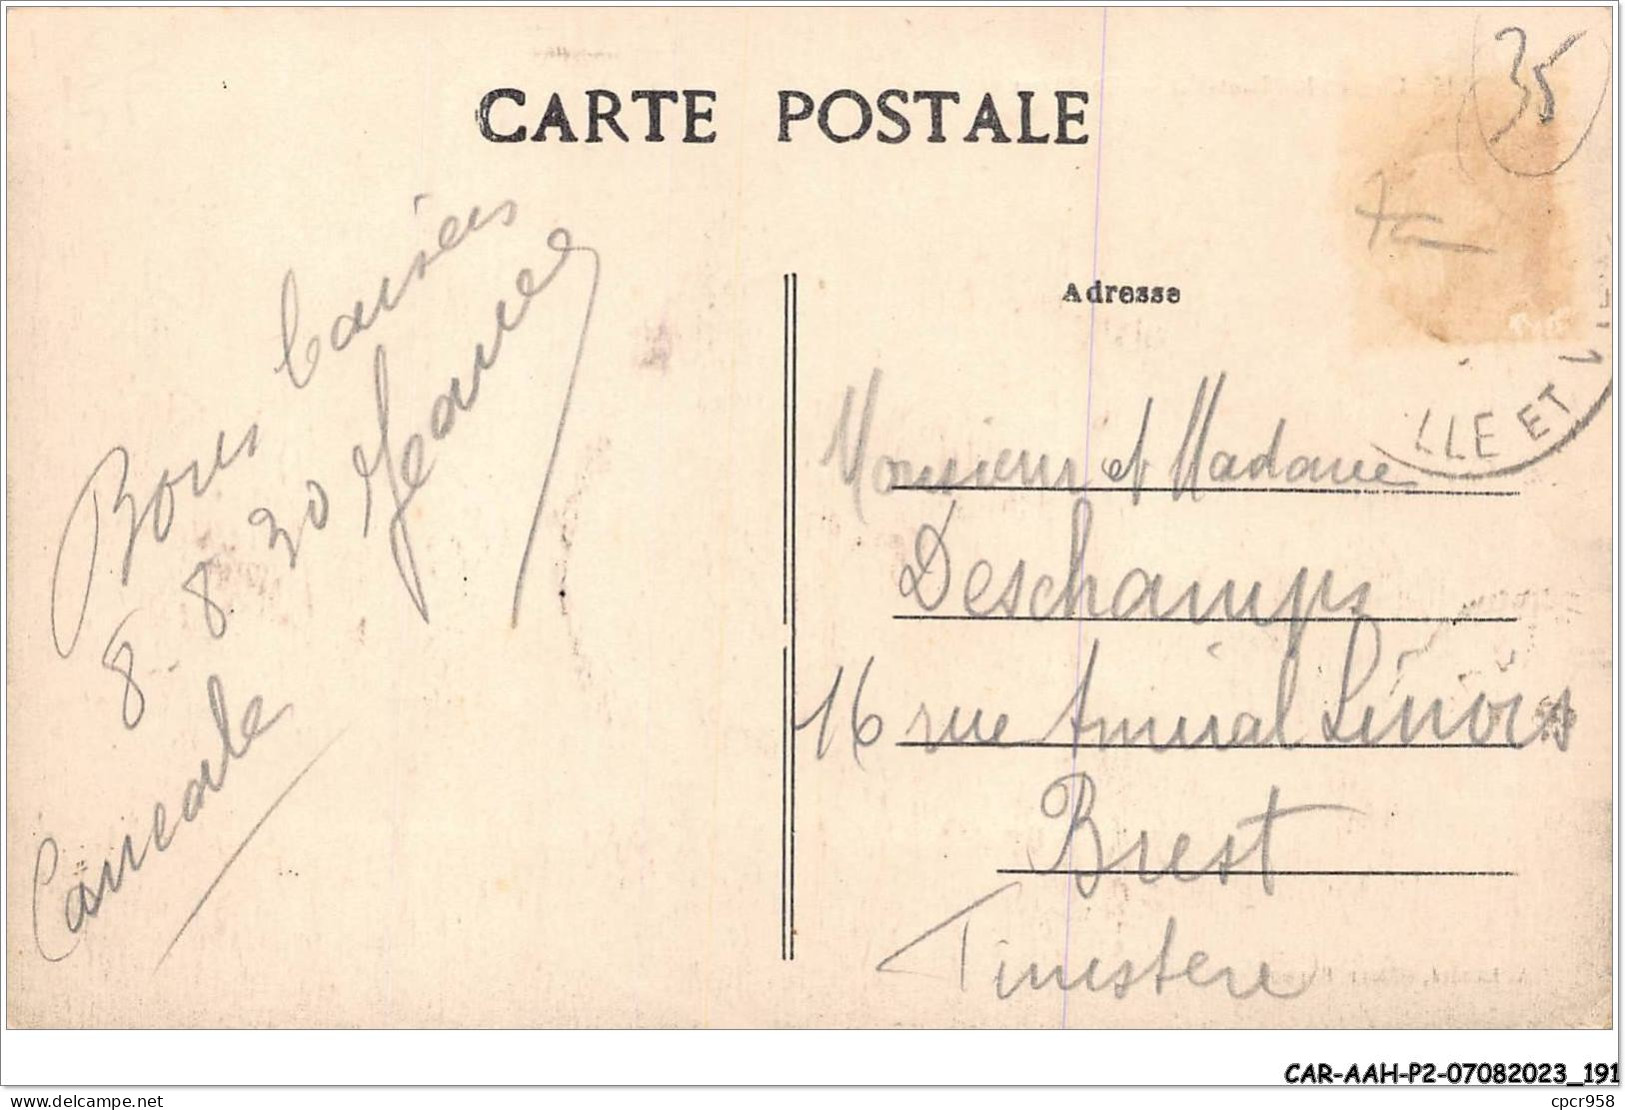 CARTE POSTALE
35
Bons baisers
8-8-30 Jeanne
Cancale
Adresse
LLE ET
Monsieur et Madame
Deschamps
16 rue Amiral Linois
Brest
Finistère
CAR-AAH-P2-07082023_191
delcampe.net
cpcr958